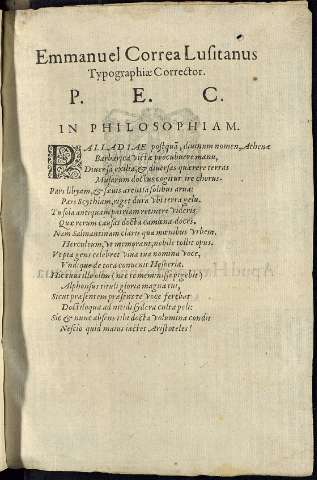 Emmanuel Correa Lusitanus
Typographiæ Corrector.
P. E. C.
IN PHILOSOPHIAM.
PALLADIAE postquã, diuinum nomen, Athenæ
Barbarica victæ procubuere manu,
Diuersa exilia, & diuersas quærere terras
Musarum doctus cogitur ire chorus.
Pars libyam, & sæuis arentia solibus arua:
Pars Scythiam, riget dura vbi terra gelu.
Tu sola antiquam patriam retinere videris
Quæ rerum causas docta camœna doces.
Nam Salmantinam claris qua mœnibus Vrbem,
Herculeum, vt memorant, nobile tollit opus.
Vt pia gens celebret viua tua nomina voce,
Vndique de tota conuenit Hesperia.
Hic tenus illustris (nec te meminisse pigebit)
Alphonsus tituli gloria magna tui,
Sicut præsentem præsente voce ferebat
Doctiloqua ad nitidi sydera culta poli:
Sic & nunc absens tibi docta volumina condit
Nescio quid maius iactet Aristoteles!